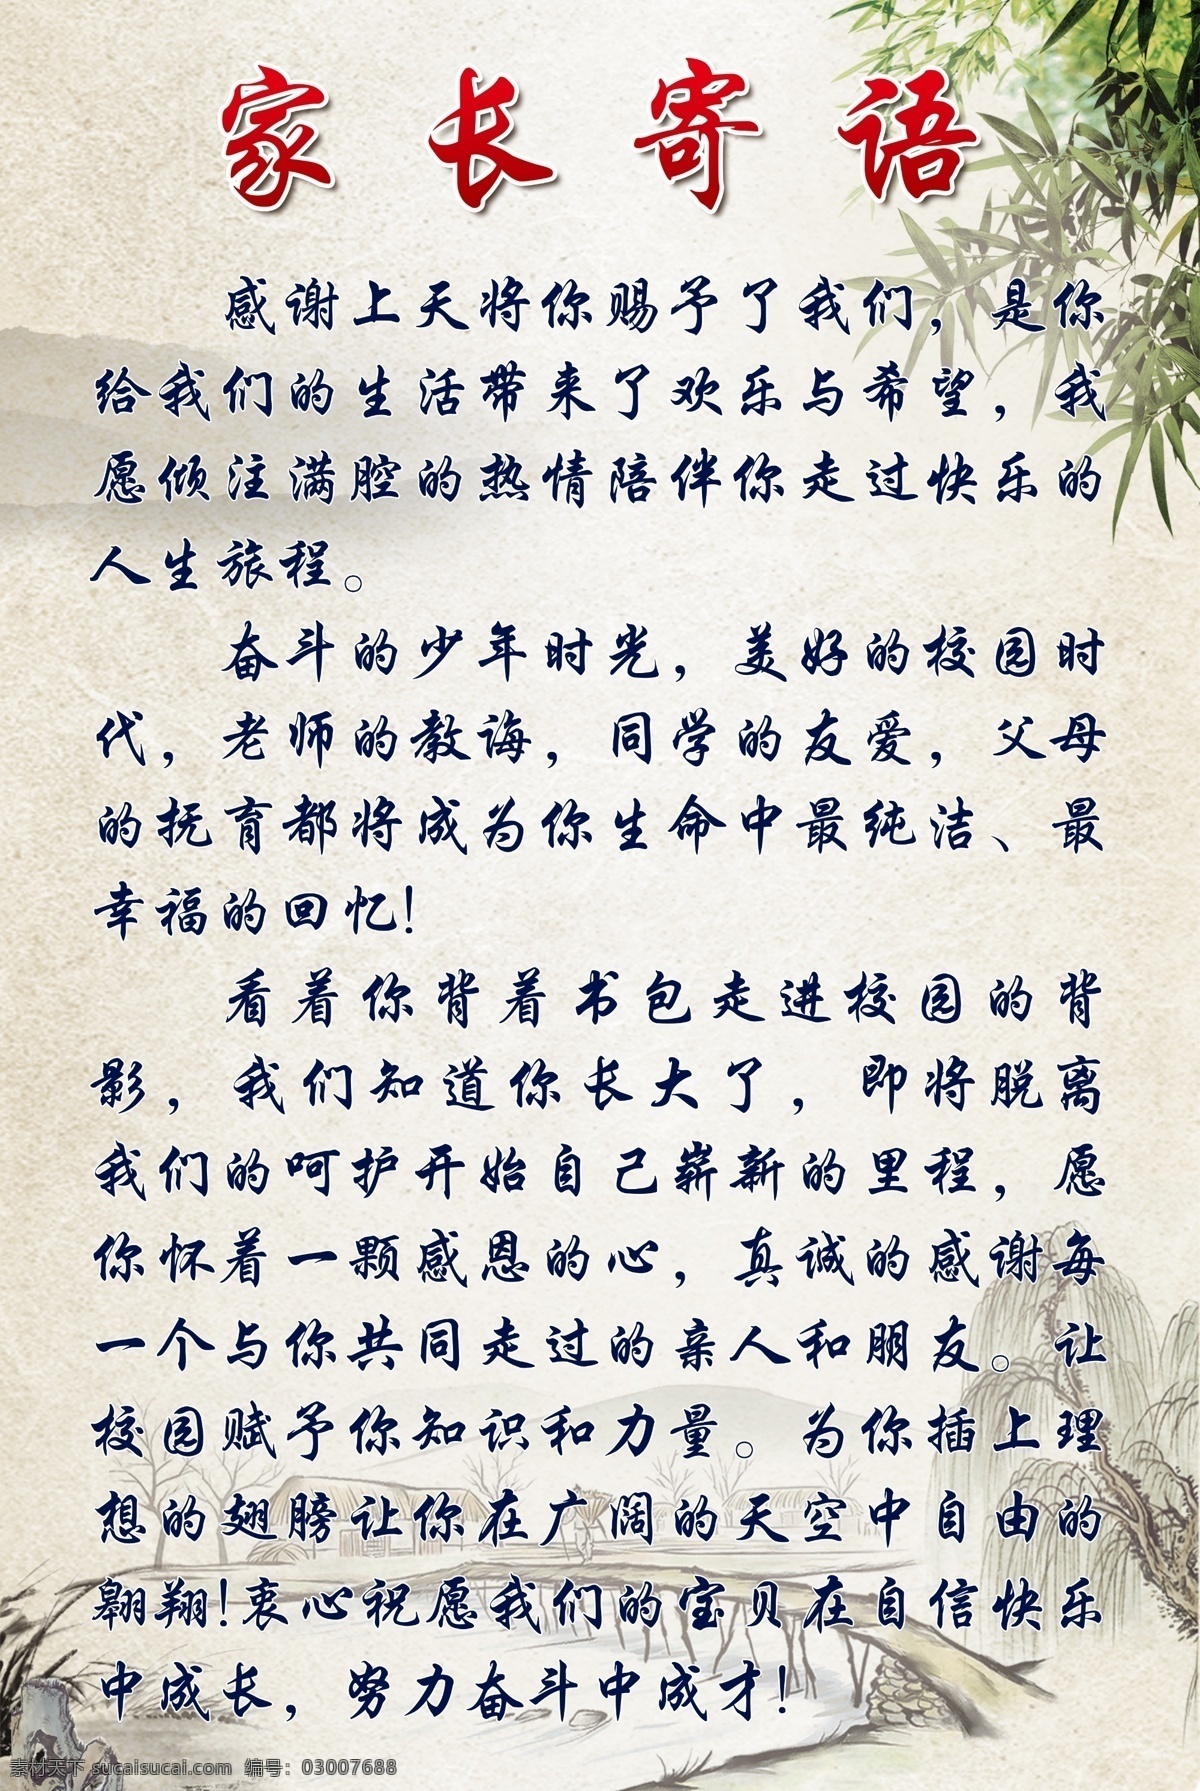 家长寄语
感谢上天将你赐予了我们，是你
给我们的生活带来了欢乐与希望，我
愿倾注满腔的热情陪伴你走过快乐的
人生旅程。
奋斗的少年时光，美好的校园时
代，老师的教诲，同学的友爱，父母
的抚育都将成为你生命中最纯洁、最
幸福的回忆！
看着你背着书包走进校园的背
影，我们知道你长大了，即将脱离
我们的呵护开始自己崭新的里程，愿
你怀着一颗感恩的心，真诚的感谢每
一个与你共同走过的亲人和朋友。让
校园赋予你知识和力量。为你插上理
想的翅膀让你在广阔的天空中自由的
翱翔！衷心祝愿我们的宝贝在自信快乐
中成长，努力奋斗中成才！
素材天下 sucaisucai.com 编号：03007688